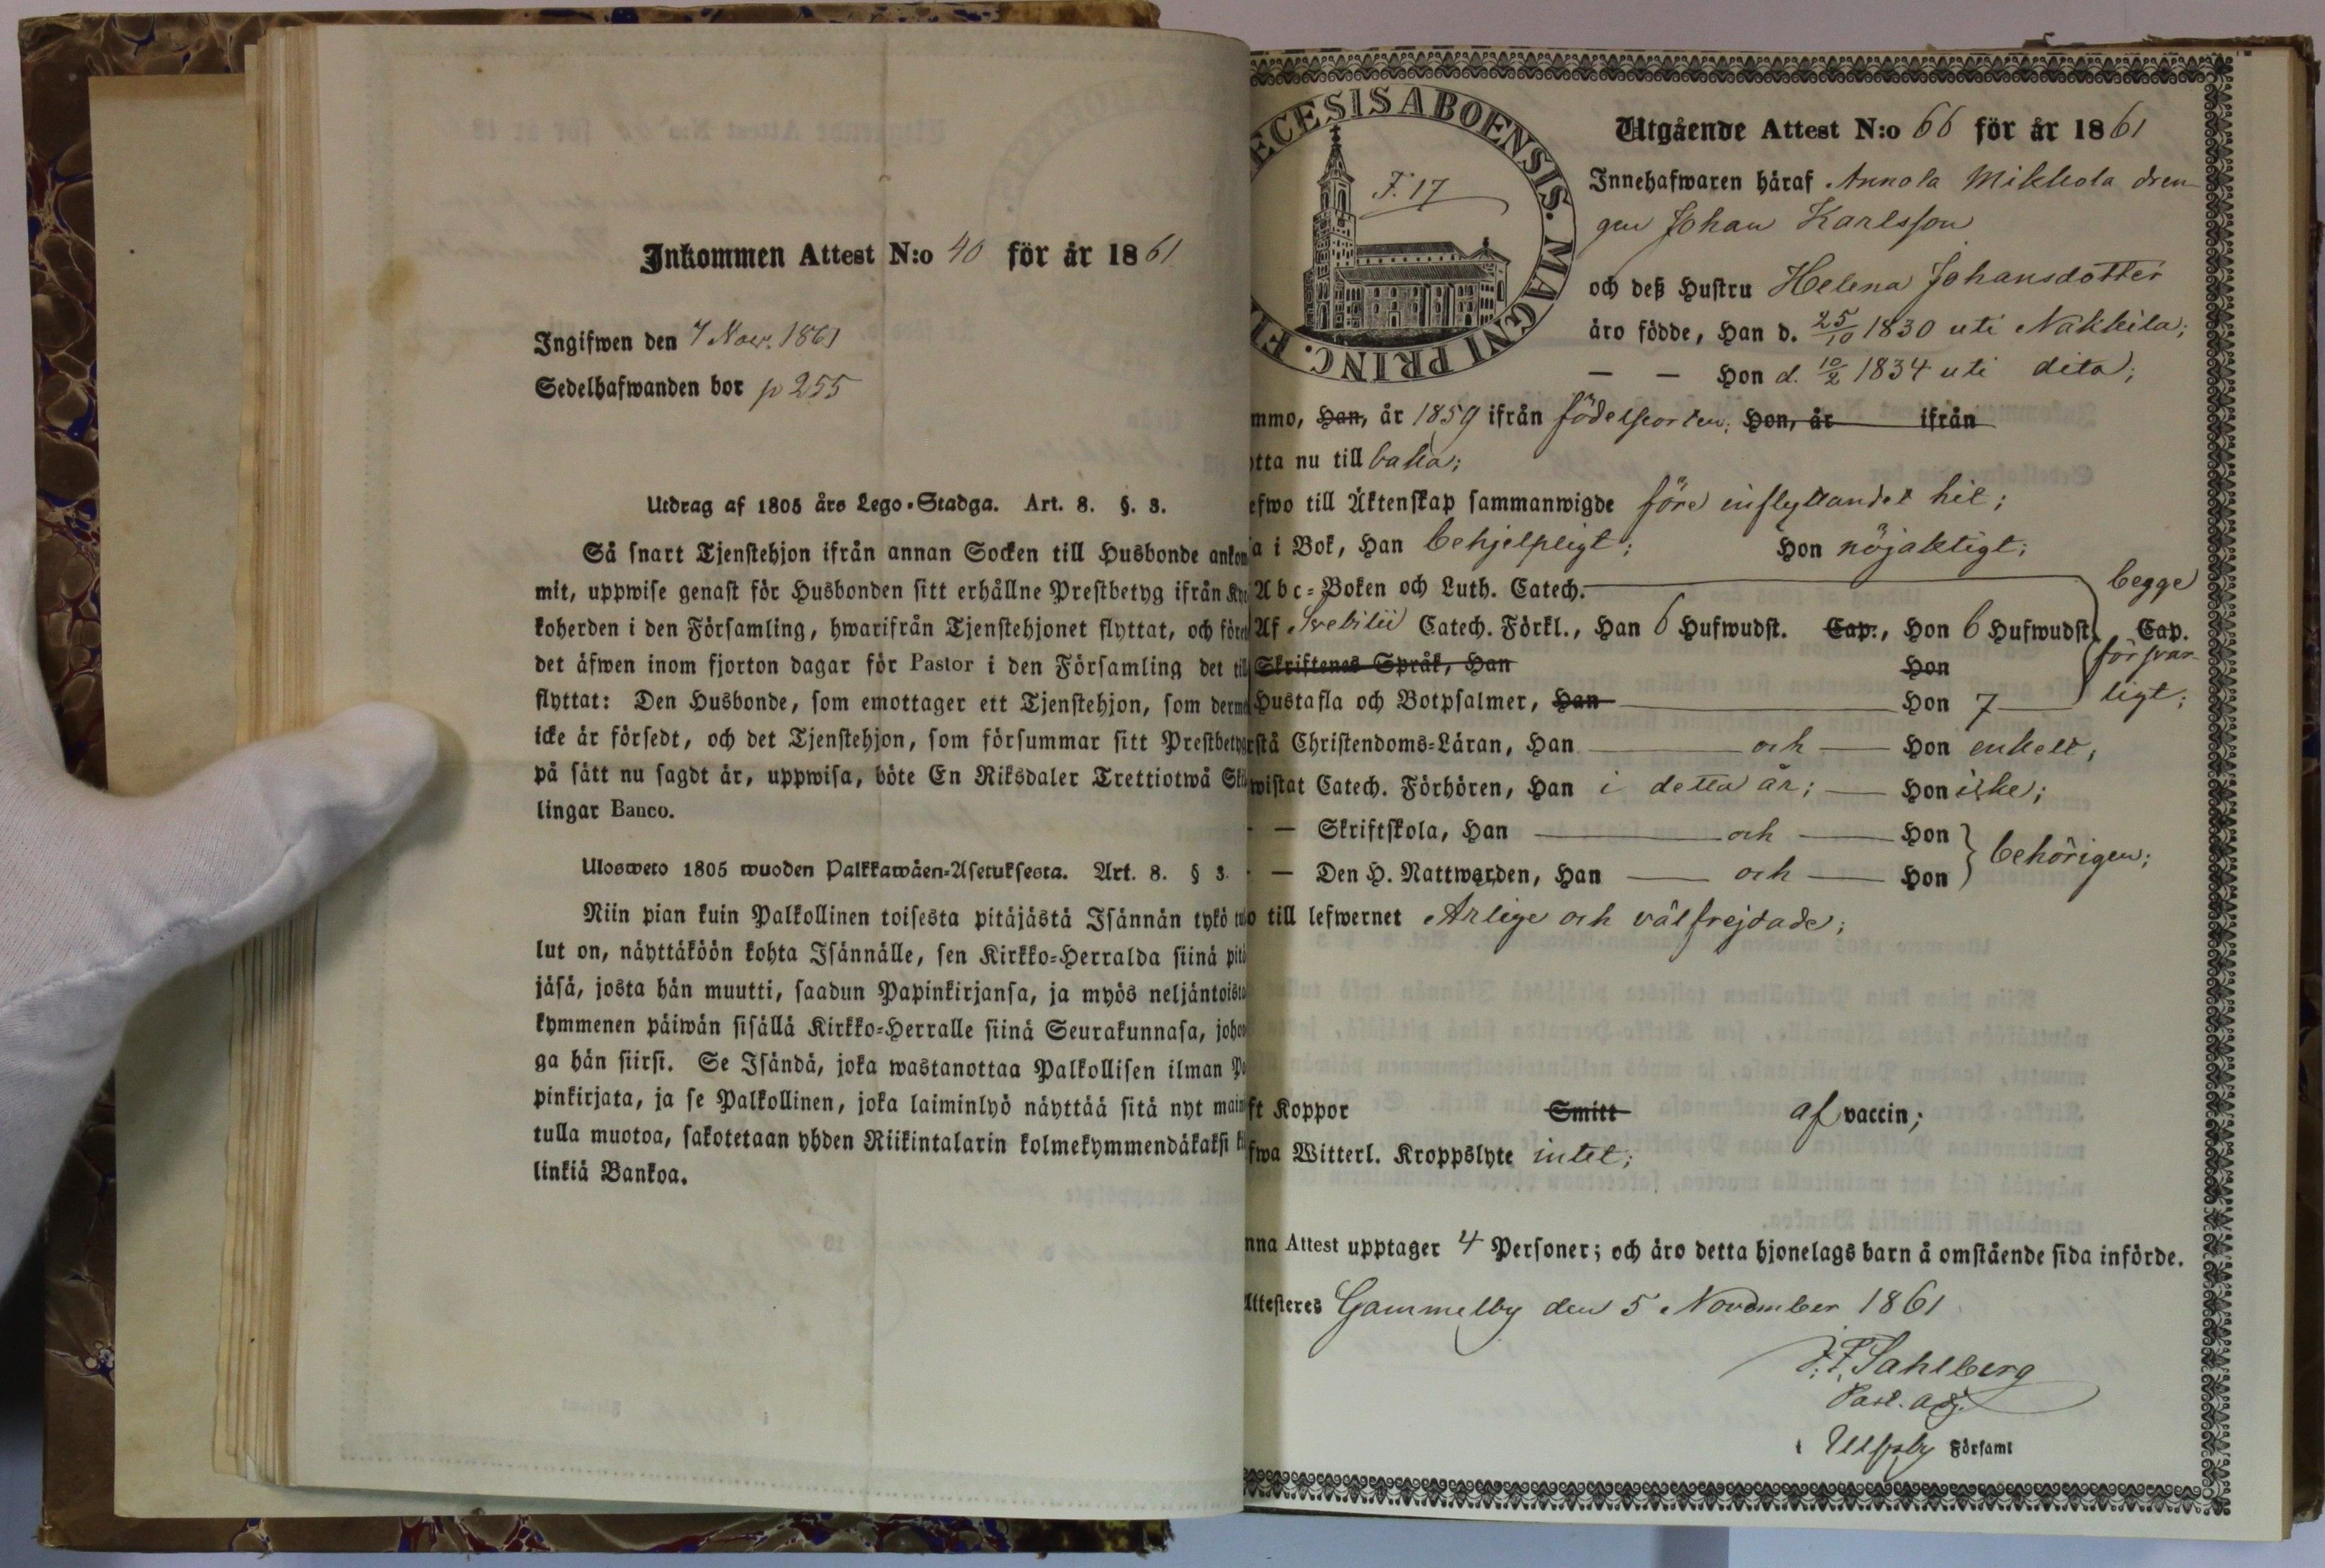 Inkommen Attest N:o 40 för år 1861
Ingifwen den 7 Nov. 1861
Sedelhafwanden bor p 255
Utdrag af 1805 års Lego-Stadga. Art. 8. §. 3.
Så snart Tjenstehjon ifrån annan Socken till Husbonde ankom
mit, uppwise genast för Husbonden sitt erhållne Prestbetyg ifrån Kyr
koherden i den Församling, hwarifrån Tjenstehjonet flyttat, och föret
det äfwen inom fjorton dagar för Pastor i den Församling det till
flyttat: Den Husbonde, som emottager ett Tjenstehjon, som derme
icke är försedt, och det Tjenstehjon, som försummar sitt Prestbetyg
på sätt nu sagdt är, uppwisa, böte En Riksdaler Trettiotwå Skil
lingar Banco.
Ulosweto 1805 wuoden Palkkawäen-Asetuksesta. Art. 8. § 3.
Niin pian kuin Palkollinen toisesta pitäjästä Isännän tykö tul
lut on, näyttäköön kohta Isännälle, sen Kirkko-Herralda siinä pitä
jäsä, josta hän muutti, saadun Papinkirjansa, ja myös neljäntoista
kymmenen päiwän sisällä Kirkko-Herralle siinä Seurakunnasa, johon
ga hän siirsi. Se Isändä, joka wastanottaa Palkollisen ilman Pa
pinkirjata, ja se Palkollinen, joka laiminlyö näyttää sitä nyt main
tulla muotoa, sakotetaan yhden Riikintalarin kolmekymmendäkaksi kil
linkiä Bankoa.
ECESIS ABOENSIS. MAGNI PRINC. FI
F. 17
Utgående Attest N:o 66 för år 1861
Innehafwaren häraf Annola Mikkola dren
gen Johan Karlsson
och deß Hustru Helena Johansdotter
äro födde, Han d. 25/10 1830 uti Nakkila;
— — Hon d. 10/2 1834 uti dito;
mmo, Han, år 1859 ifrån födelseorten; Hon, år ifrån
tta nu till baka;
efwo till Äktenskap sammanwigde före inflyttandet hit;
a i Bok, Han behjelpligt; Hon nöjaktigt;
Abc-Boken och Luth. Catech. begge
Af Svebilii Catech. Förkl., Han 6 Hufwudst. Cap., Hon 6 Hufwudst. Cap.
Skriftenes Språk, Han Hon försvar
Hustafla och Botpsalmer, Han Hon 7 ligt;
rstå Christendoms-Läran, Han och Hon enkelt;
wistat Catech. Förhören, Han i detta år; Hon icke;
— Skriftskola, Han och Hon
— Den H. Nattwarden, Han och Hon behörigen;
o till lefwernet Ärlige och välfrejdade;
ft Koppor Smitt af vaccin;
fwa Witterl. Kroppslyte intet;
nna Attest upptager 4 Personer; och äro detta hjonelags barn å omstående sida införde.
Attesteres Gammelby den 5 November 1861
J. F. Sahlberg
Past. adj.
i Ulfsby Församl